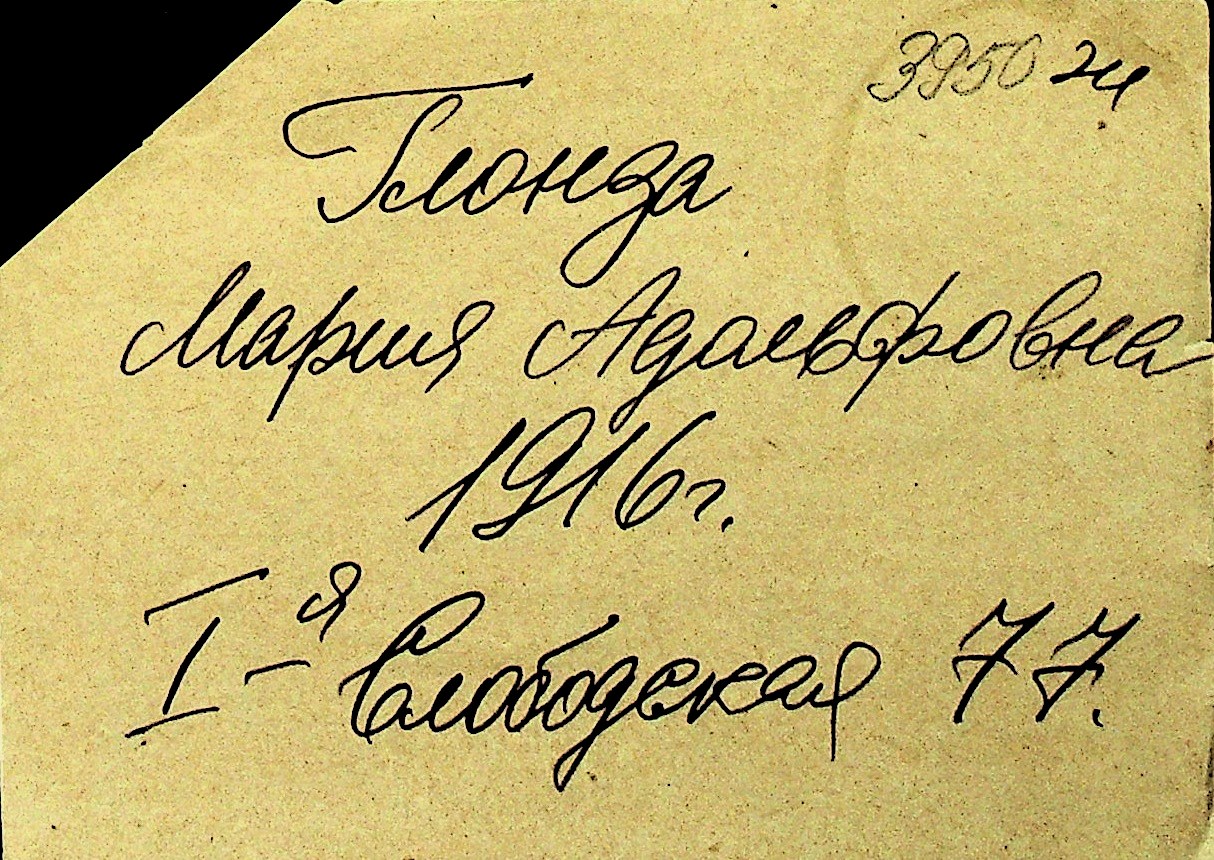 3950 2и
Глонза
Мария Адольфовна
1916г.
I-я Слободская 77.